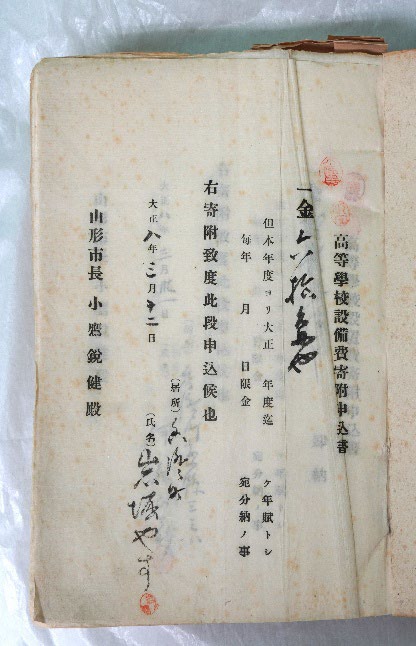 高等學校設備費寄附申込書
一金 拾 也
但本年度ヨリ大正 年度迄 ケ年賦トシ
毎年 月 日限金 宛分納ノ事
右寄附致度此段申込候也
大正八年三月十二日
（居所）
（氏名）岩堀やす
山形市長 小鷹鋭健殿